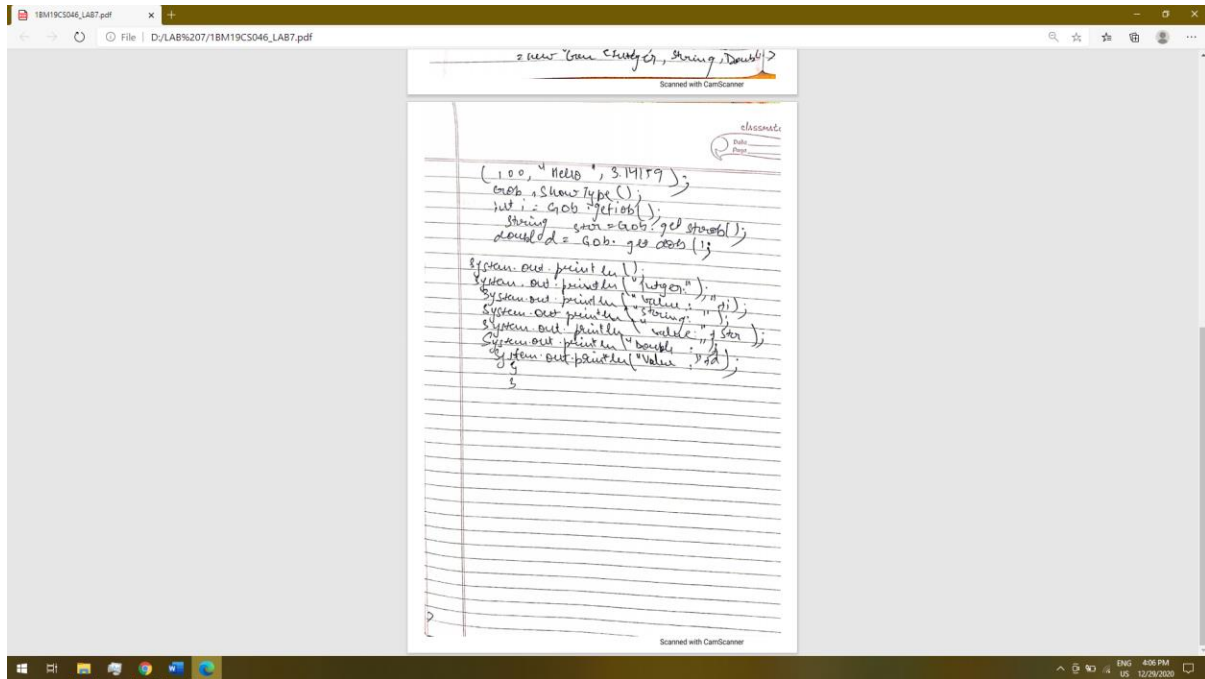 1BM19CS046_LAB7.pdf
File | D:/LAB%207/1BM19CS046_LAB7.pdf
= new Gen <Integer, String, Double>
Scanned with CamScanner
classmate
Date
Page
(100, "Hello", 3.14159);
Gob.ShowType();
int i = Gob.getiob();
String str = Gob.get strob();
double d = Gob.get dob();
System.out.println();
System.out.println("Integer:");
System.out.println("Value: "+i);
System.out.println("String: ");
System.out.println("value: "+str);
System.out.println("Double: ");
System.out.println("Value: "+d);
}
}
Scanned with CamScanner
ENG 4:06 PM
US 12/29/2020